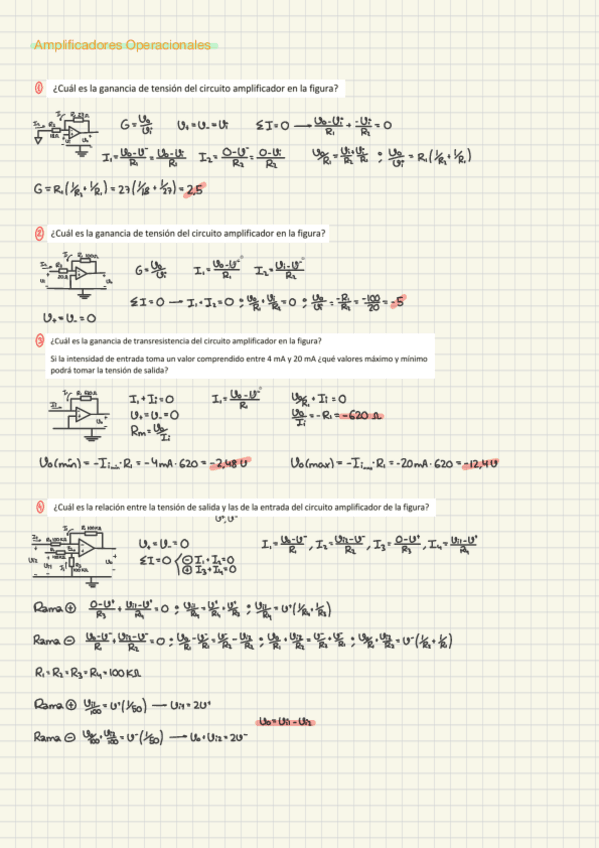 Amplificadores Operacionales
① ¿Cuál es la ganancia de tensión del circuito amplificador en la figura?
G = Uo/Ui   U+ = U- = Ui   ΣI = 0 → (Uo-Ui)/R1 + (-Ui)/R2 = 0
I1 = (Uo-U-)/R1 = (Uo-Ui)/R1   I2 = (0-U-)/R2 = (0-Ui)/R2   Uo/R1 = Ui/R2 + Ui/R1 ; Uo/Ui = R1(1/R2 + 1/R1)
G = R1(1/R2 + 1/R1) = 27(1/18 + 1/27) = 2,5
② ¿Cuál es la ganancia de tensión del circuito amplificador en la figura?
G = Uo/Ui   I1 = (Uo-U-)/R1   I2 = (Ui-U-)/R2
ΣI = 0 → I1 + I2 = 0 ; Uo/R1 + Ui/R2 = 0 ; Uo/Ui = -R1/R2 = -100/20 = -5
U+ = U- = 0
③ ¿Cuál es la ganancia de transresistencia del circuito amplificador en la figura?
Si la intensidad de entrada toma un valor comprendido entre 4 mA y 20 mA ¿qué valores máximo y mínimo
podrá tomar la tensión de salida?
I1 + Ii = 0   I1 = (Uo-U-)/R1   Uo/R1 + Ii = 0
U+ = U- = 0   Uo/Ii = -R1 = -620 Ω
Rm = Uo/Ii
Uo(mín) = -Ii · R1 = -4mA · 620 = -2,48 U   Uo(max) = -Ii · R1 = -20mA · 620 = -12,4 U
④ ¿Cuál es la relación entre la tensión de salida y las de la entrada del circuito amplificador de la figura?
U+ = U- = 0   I1 = (Uo-U-)/R1 , I2 = (Ui2-U-)/R2 , I3 = (0-U+)/R3 , I4 = (Ui1-U+)/R4
ΣI = 0 ⊖ I1 + I2 = 0
⊕ I3 + I4 = 0
Rama ⊕ (0-U+)/R3 + (Ui1-U+)/R4 = 0 ; Ui1/R4 = U+/R4 + U+/R3 ; Ui1/R4 = U+(1/R4 + 1/R3)
Rama ⊖ (Uo-U-)/R1 + (Ui2-U-)/R2 = 0 ;
R1 = R2 = R3 = R4 = 100 KΩ
Rama ⊕ Ui1/100 = U+(1/50) → Ui1 = 2U+
Uo = Ui1 - Ui2
Rama ⊖ Uo/100 + Ui2/100 = U-(1/50) → Uo + Ui2 = 2U-